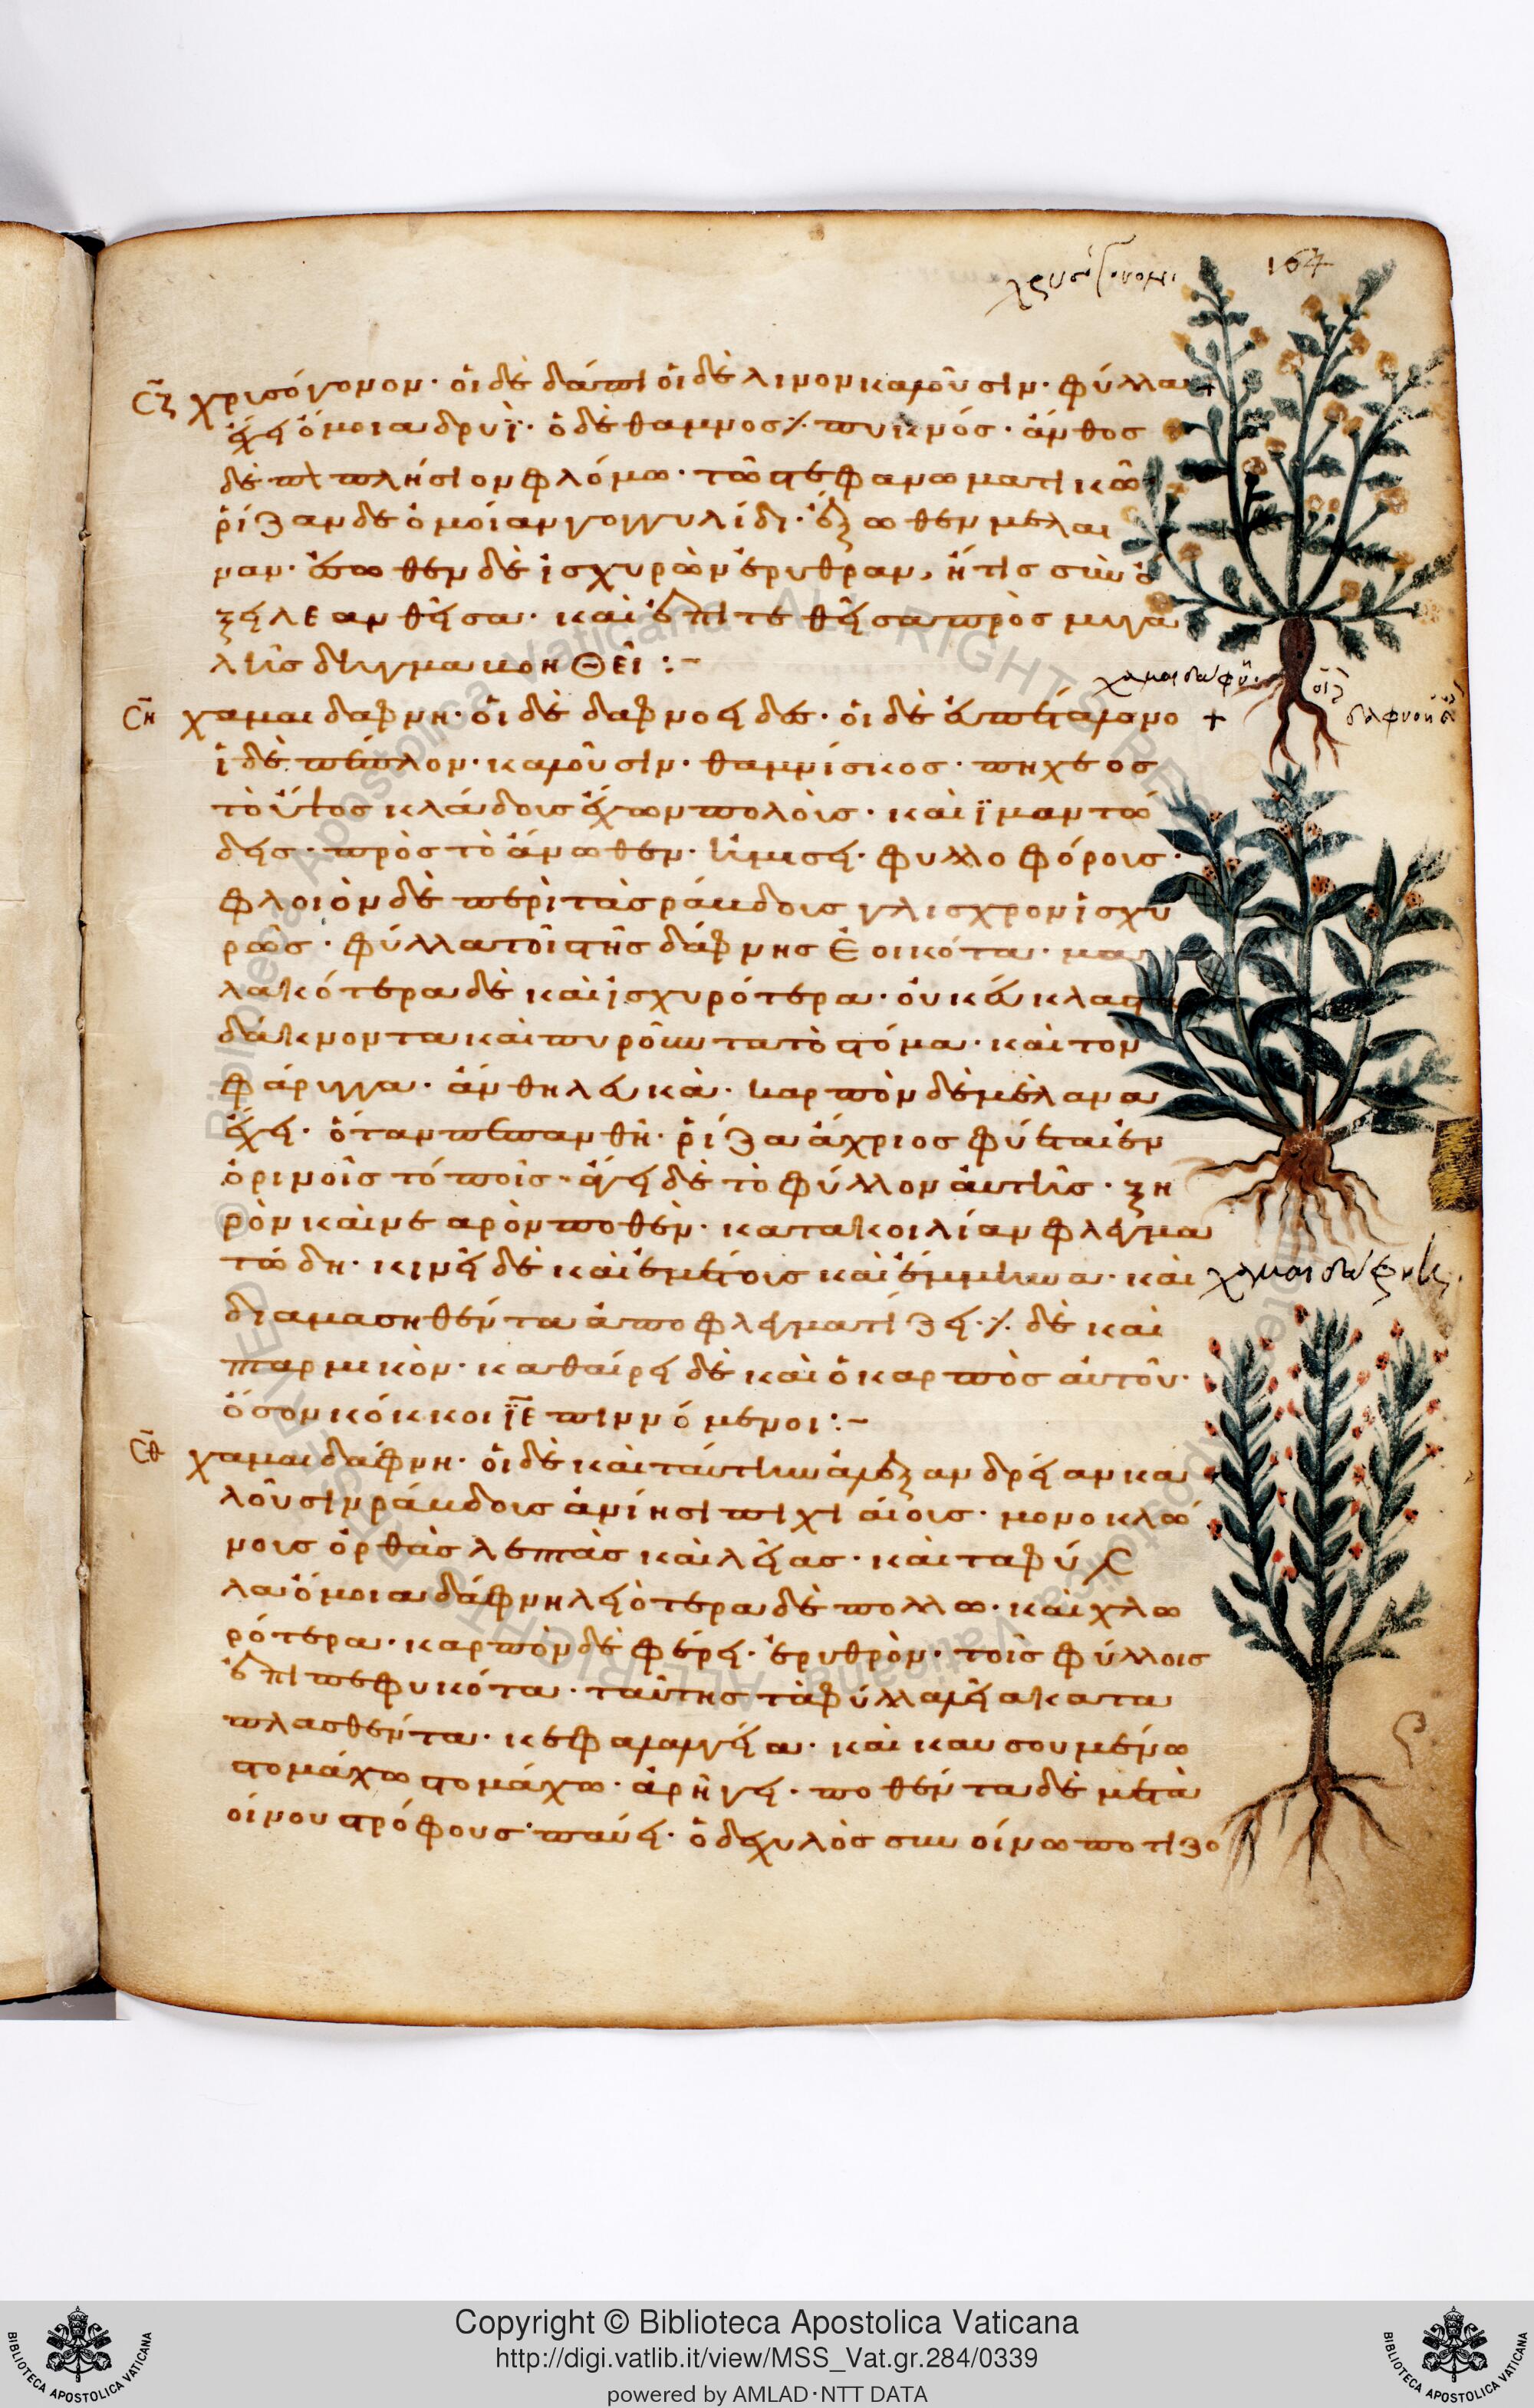 χρυσόγονον
164
σ̄ζ χρισόγονον· ὁι δὲ δάπι ὁι δὲ λινον καλοῦσιν· φύλλα
ἔχει ὅμοια δρυῒ· ὁ δὲ θαμνος ⁒ πυκνός· ἄνθος
δὲ πλησιον φλόμω· τῶ στεφανωματικῶ
ῥίζαν δὲ ὁμοίαν γογγυλίδι· ἔξωθεν μελαι
ναν· ἔσωθεν δὲ ἰσχυρὼν ἐρυθραν, ἥτισ σὺν ὀ
ξει λεανθεῖσα· καὶ ἐπιτεθεῖσα πρὸσ μυγα
λῆς δῆγμα βοηθεῖ :-
χαμαιδάφνη·
οἱ
δαφνοειδὲς
σ̄η χαμαιδαφνη· ὁι δὲ δαφνοειδέσ· ὁι δὲ ἐυπέταλανο +
ἱ δὲ πέπλον· καλοῦσιν· θαμνίσκοσ· πηχεοσ
τὸ ὕψοσ κλάδοισ ἔχων πολὸισ· καὶ ϊμαντώ
δεισ· πρὸσ τὸ ἄνωθεν· ἡμισει· φυλλοφόροισ·
φλοιὸν δὲ περὶ τὰσ ράβδοισ γλισχρον ἰσχυ
ρῶσ· φύλλα τοῖ τῆσ δάφνησ ἐοικότα· μα
λακότερα δὲ καὶ ἰσχυρότερα· ὀυκ ἔυκλαστα
δάκνοντα καὶ πυροῦντα τὸ στόμα· καὶ τον
φάριγγα· ἄνθη λευκὰ· καρπὸν δὲ μέλανα
ἔχει· ὅταν πεπανθῆ· ῥίζα ἄχριοσ φύεται ἐν
ὀρινοῖσ τόποισ· ἄγει δὲ τὸ φύλλον ἀυτῆσ· ξη
ρὸν καὶ νεαρὸν ποθὲν· κατα κοιλίαν φλεγμα
τώδη· κινεῖ δὲ καὶ ἐμέτοισ καὶ ἔμμηνα· καὶ
χαμαιδάφνη
διαμασηθέντα ἀποφλεγματίζει ⁒ δὲ καὶ
πταρμικὸν· καθαίρει δὲ καὶ ὁ καρπὸσ ἀυτοῦ·
ὅσον κόκκοι ῑε πιννόμενοι :-
σ̄θ χαμαιδάφνη· ὁι δὲ καὶ τάυτην ἀλεξανδρείαν κα
λοῦσιν ράβδοισ ἀνίησι πιχιάιοισ· μονοκλώ
νοισ ὀρθὰσ λεπτὰσ καὶ λείασ· καὶ τα φύλ
λα ὅμοια δάφνη λειότερα δὲ πολλω· καὶ χλω
ρότερα· καρπὸν δὲ φέρει· ἐρυθρὸν· τοῖσ φύλλοισ
ἐπιπεφυκότα· τάυτησ τὰ φύλλα λεῖα κατα
πλασθέντα· κεφαλαλγεία· καὶ καυσουμένω
στομάχω στομάχω· ἀρήγει· ποθέντα δὲ μετὰ
οἴνου στρόφουσ· πάυει· ὁ δε χυλὸσ συν οίνω ποτιζο
Copyright © Biblioteca Apostolica Vaticana
http://digi.vatlib.it/view/MSS_Vat.gr.284/0339
powered by AMLAD·NTT DATA
BIBLIOTECA APOSTOLICA VATICANA
BIBLIOTECA APOSTOLICA VATICANA